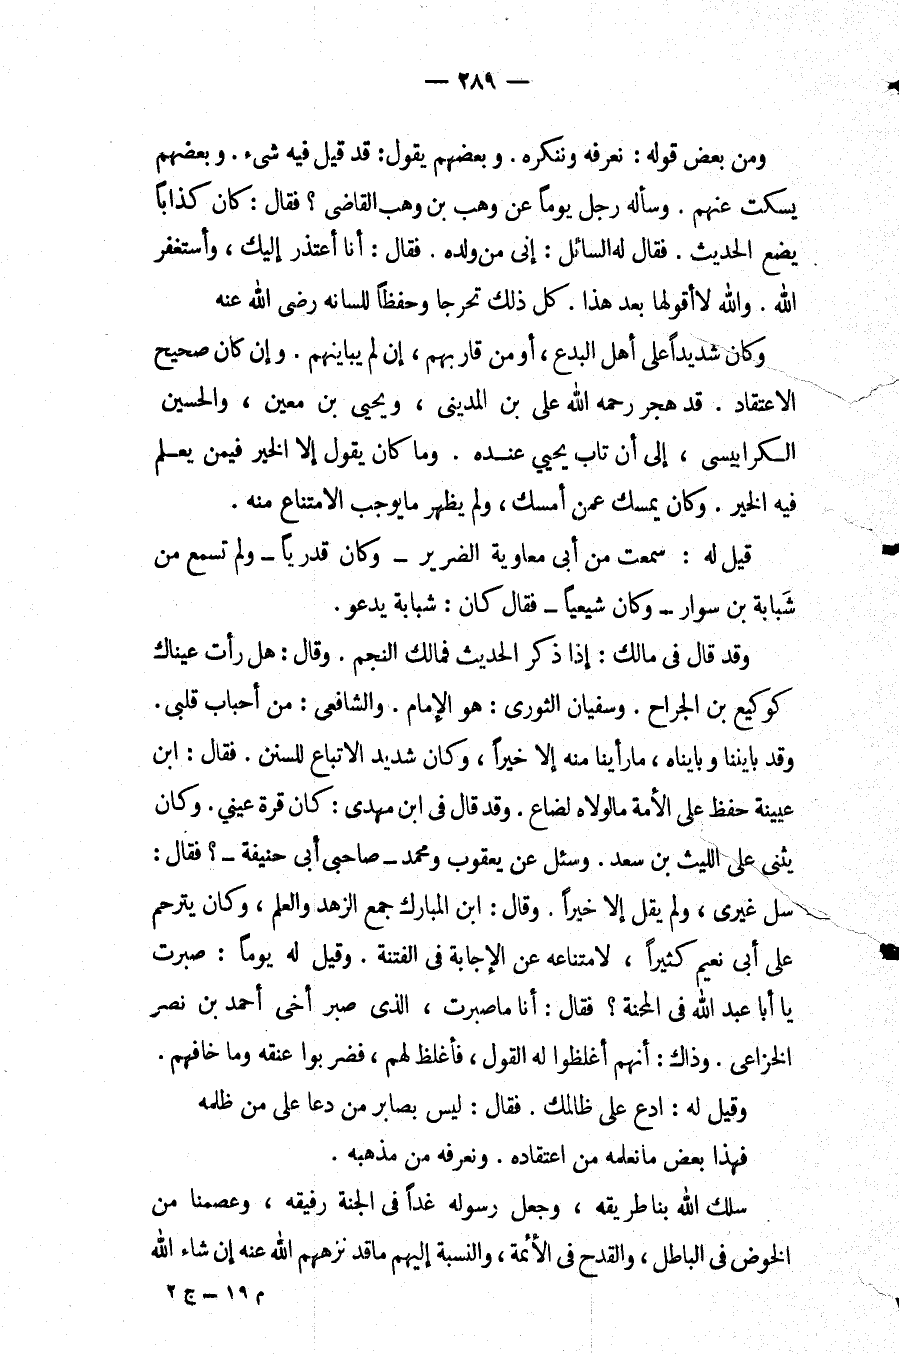 — ٢٨٩ —
ومن بعض قوله : نعرفه وننكره . و بعضهم يقول: قد قيل فيه شىء . و بعضهم
يسكت عنهم . وسأله رجل يوماً عن وهب بن وهب القاضى ؟ فقال : كان كذاباً
يضع الحديث . فقال له السائل : إنى من ولده . فقال : أنا أعتذر إليك ، وأستغفر
الله . والله لا أقولها بعد هذا . كل ذلك تحرجا وحفظاً للسانه رضى الله عنه
وكان شديداً على أهل البدع ، أو من قاربهم ، إن لم يباينهم . و إن كان صحيح
الاعتقاد . قد هجر رحمه الله على بن المدينى ، ويحيى بن معين ، والحسين
الكرابيسى ، إلى أن تاب يحيي عنده . وما كان يقول إلا الخير فيمن يعلم
فيه الخير . وكان يمسك عمن أمسك ، ولم يظهر مايوجب الامتناع منه .
قيل له : سمعت من أبى معاوية الضرير – وكان قدرياً – ولم تسمع من
شَبابة بن سوار – وكان شيعياً – فقال كان : شبابة يدعو .
وقد قال فى مالك : إذا ذكر الحديث فمالك النجم . وقال : هل رأت عيناك
كوكيع بن الجراح . وسفيان الثورى : هو الإمام . والشافعى : من أحباب قلبى .
وقد باينا و باينناه ، مارأينا منه إلا خيراً ، وكان شديد الاتباع للسنن . فقال : ابن
عيينة حفظ على الأمة مالولاه لضاع . وقد قال فى ابن مهدى : كان قرة عيني . وكان
يثنى على الليث بن سعد . وسئل عن يعقوب ومحمد – صاحبى أبى حنيفة – ؟ فقال :
سل غيرى ، ولم يقل إلا خيراً . وقال : ابن المبارك جمع الزهد والعلم ، وكان يترحم
على أبى نعيم كثيراً ، لامتناعه عن الإجابة فى الفتنة . وقيل له يوماً : صبرت
يا أبا عبد الله فى المحنة ؟ فقال : أنا ماصبرت ، الذى صبر أخى أحمد بن نصر
الخزاعى . وذاك : أنهم أغلظوا له القول ، فأغلظ لهم ، فضربوا عنقه وما خافهم .
وقيل له : ادع على ظالمك . فقال : ليس بصابر من دعا على من ظلمه
فهذا بعض مانعلمه من اعتقاده . ونعرفه من مذهبه .
سلك الله بنا طريقه ، وجعل رسوله غداً فى الجنة رفيقه ، وعصمنا من
الخوض فى الباطل ، والقدح فى الأئمة ، والنسبة إليهم ماقد نزههم الله عنه إن شاء الله
م ١٩ – ج ٢